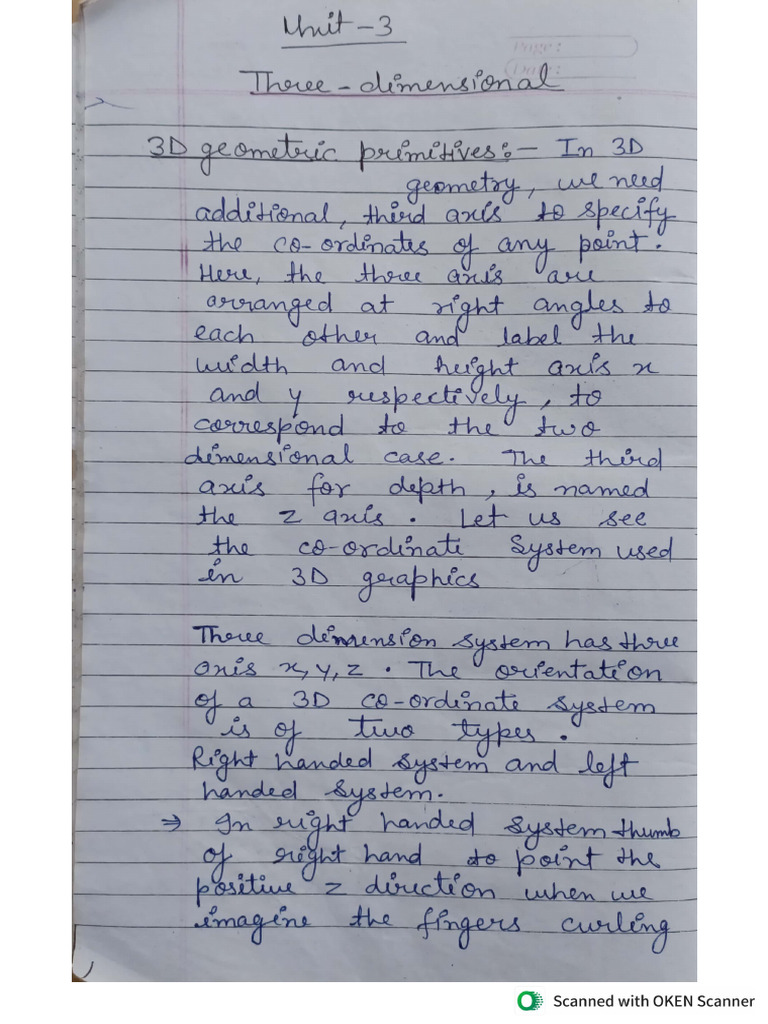 Unit-3
Page:
Date:
Three-dimensional
3D geometric primitives:- In 3D
geometry, we need
additional, third axis to specify
the co-ordinates of any point.
Here, the three axis are
arranged at right angles to
each other and label the
width and height axis x
and y respectively, to
correspond to the two
dimensional case. The third
axis for depth, is named
the z axis. Let us see
the co-ordinate system used
in 3D graphics
Three dimension system has three
axis x, y, z. The orientation
of a 3D co-ordinate system
is of two types.
Right handed system and left
handed system.
⇒ In right handed system thumb
of right hand to point the
positive z direction when we
imagine the fingers curling
Scanned with OKEN Scanner